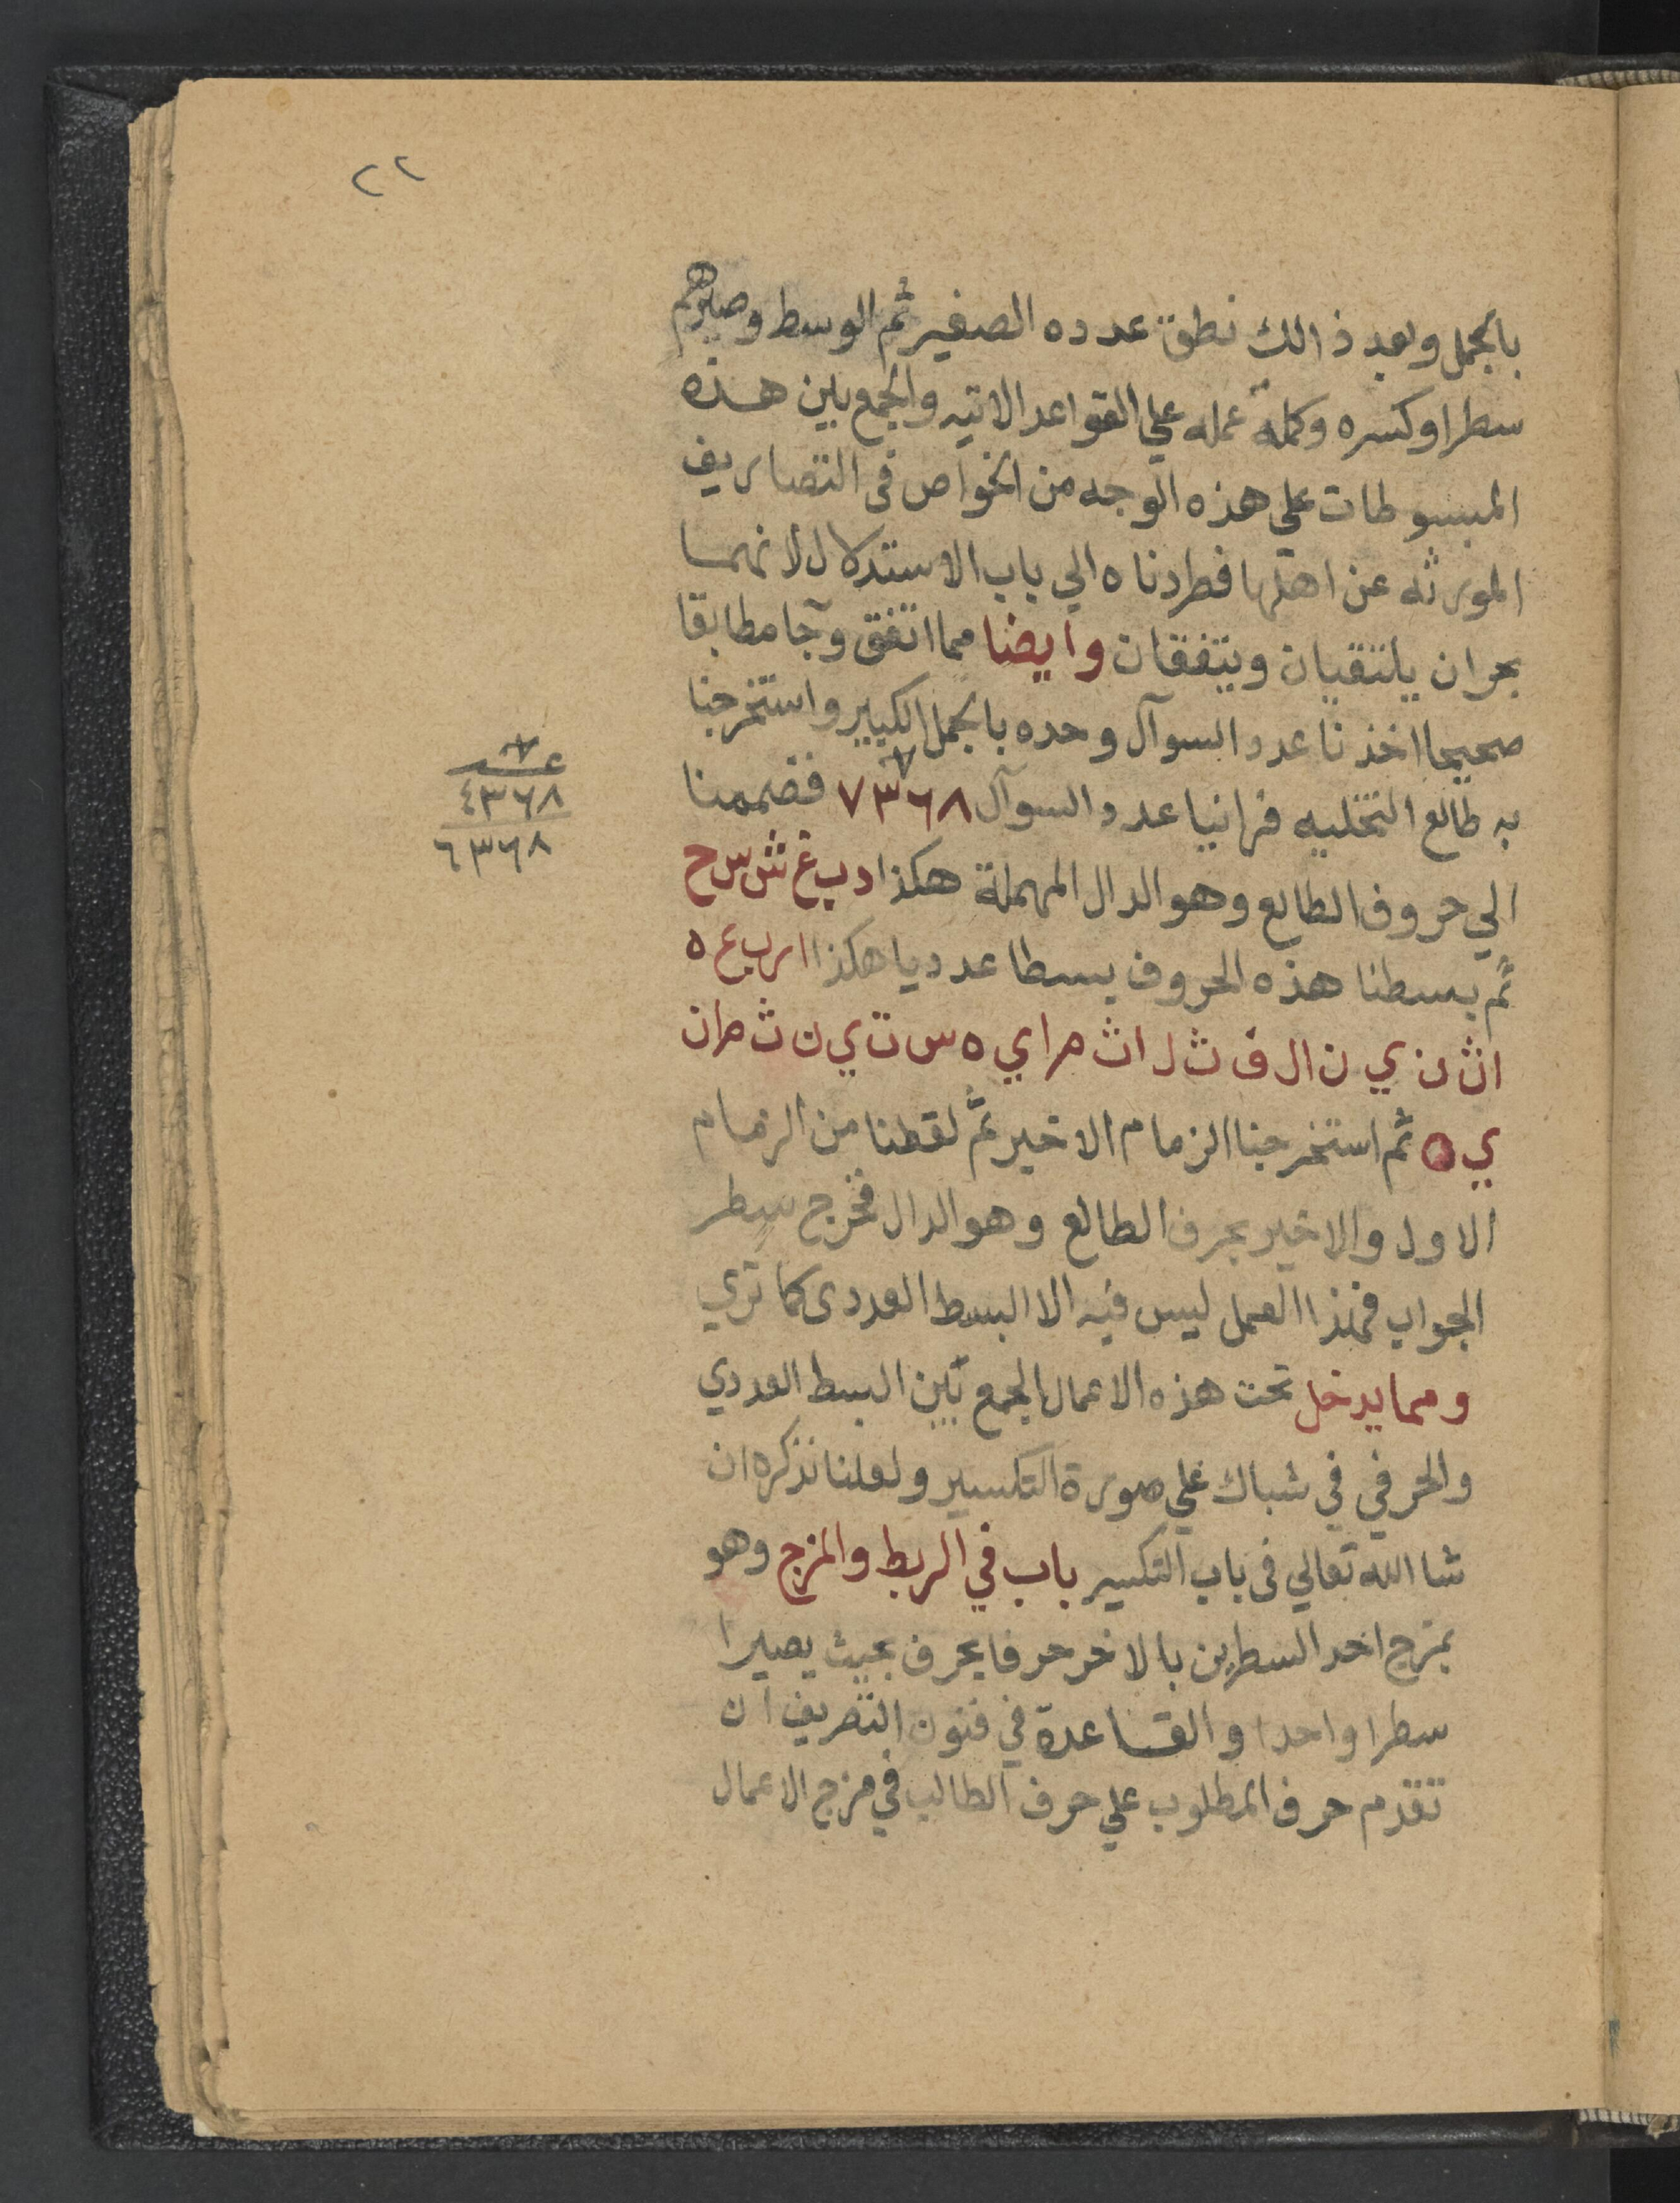 ٢٢
بالجمل وبعد ذالك نطق عدده الصغير ثم الوسط وصيرهم
سطرا وكسره وكمله عمله علي القواعد الاتيه والجمع بين هذه
المبسوطات علي هذه الوجه من الخواص فى التصاريف
المورثه عن اهلها فطردناه الي باب الاستدلال لانهما
بحران يلتقيان ويتفقان وايضا مما اتفق وآجا مطابقا
صحيحا اخذنا عدد السوآل وحده بالجمل الكبير واستخرجنا
به طالع التخليه فرانيا عدد السوآل ٧٣٦٨ فضممنا
الي حروف الطالع وهو الدال المهملة هكذا د ب غ ش س ح
ثم بسطنا هذه الحروف بسطا عدديا هكذا ا ر ب ع ه
ا ث ن ي ن ا ل ف ث ل ا ث م ا ي ه س ت ي ن ث م ا ن
ي ه ثم استخرجنا الزمام الاخير ثم لقطنا من الزمام
الاول والاخير بحرف الطالع وهو الدال فخرج سطر
الجواب فهذا العمل ليس فيه الا البسط العددى كما تري
ومما يدخل تحت هذه الاعمال الجمع بين البسط العددي
والحرفي في شباك علي صورة التكسير ولعلنا نذكره ان
شا الله تعالي فى باب التكسير باب في الربط والمزج وهو
بمزج احد السطرين بالاخر حرفا بحرف بحيث يصيرا
سطرا واحدا والقاعدة في فنون التصريف ان
تقدم حرف المطلوب علي حرف الطالب في مزج الاعمال
٤٣٦٨
٦٣٦٨